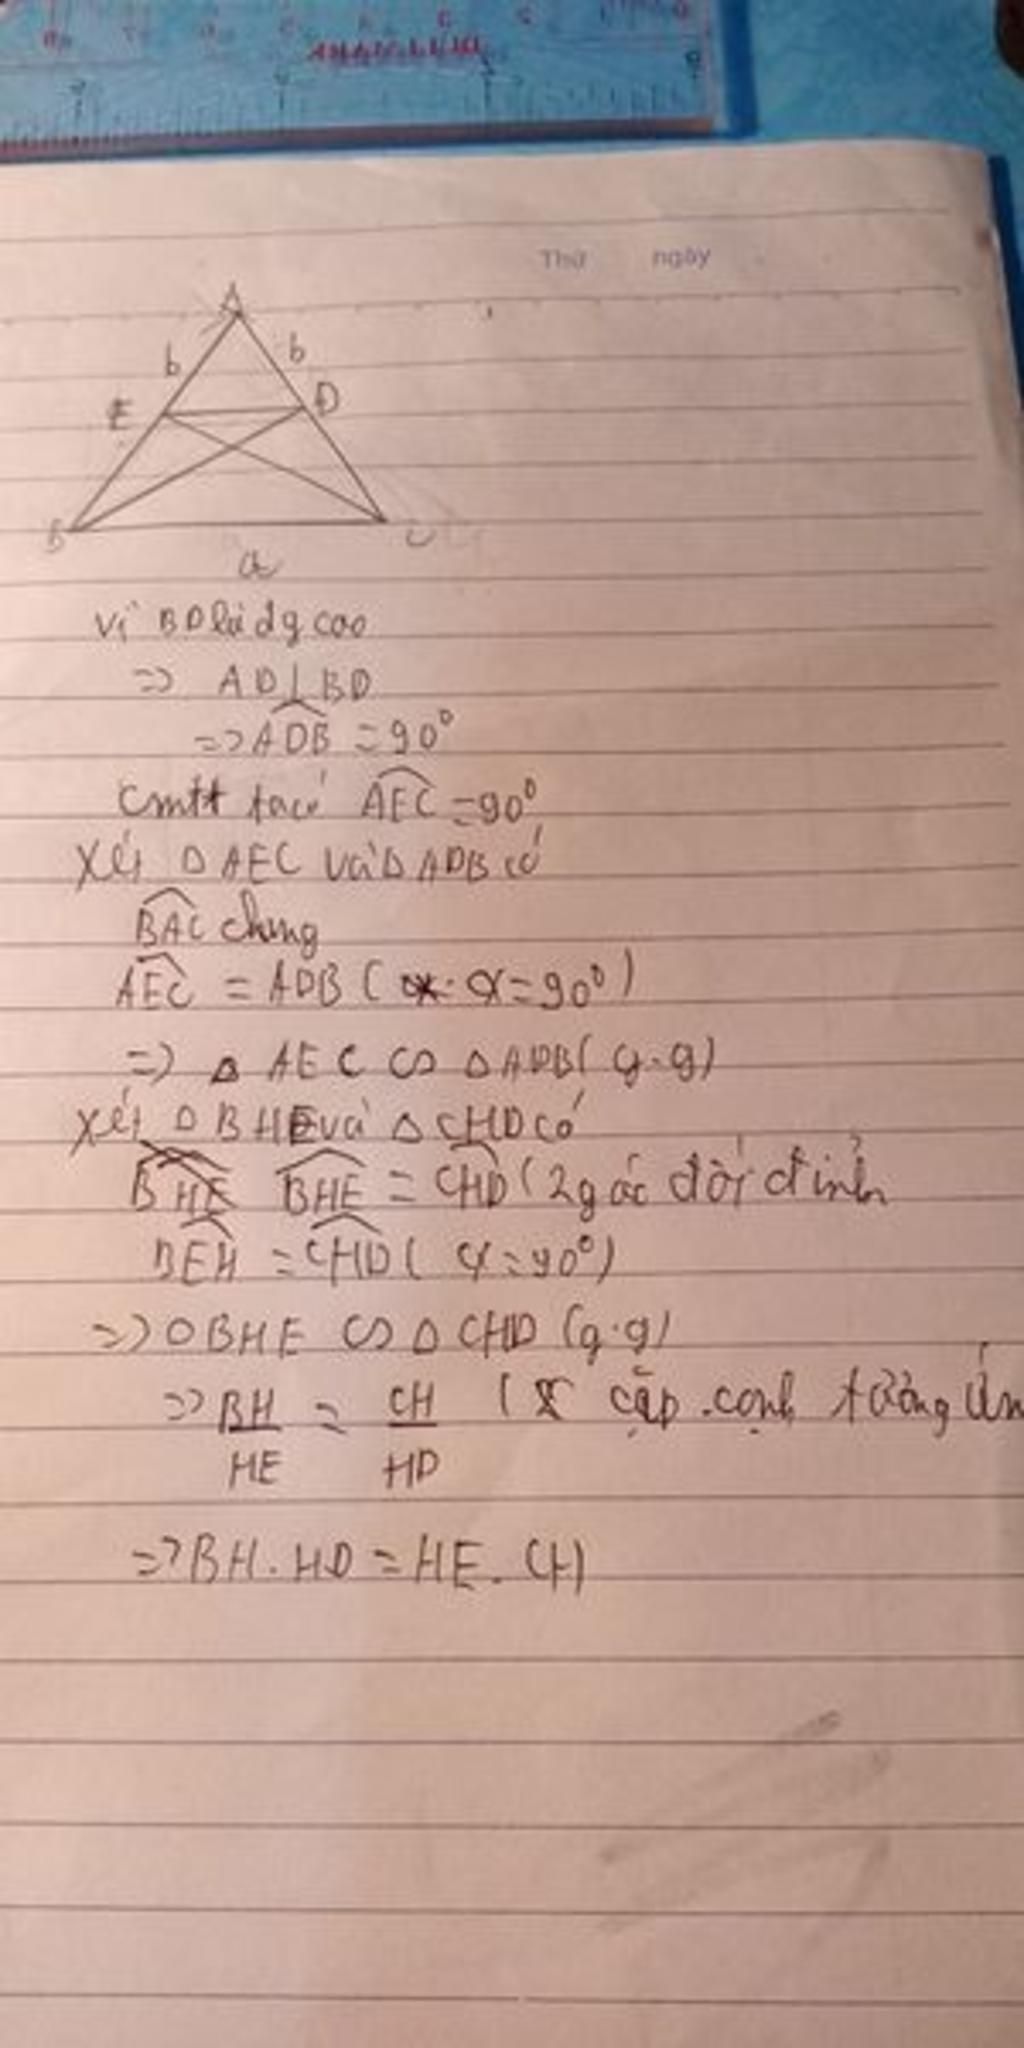 Thứ ngày
A
b b
E D
B C
a
Vì BD là đg cao
=> AD⊥BD
=> ADB = 90°
cmtt ta có AEC = 90°
Xét Δ AEC và Δ ADB có
BAC chung
AEC = ADB ( α = 90°)
=> Δ AEC ∽ Δ ADB ( g.g)
Xét Δ BHE và Δ CHD có
BHE = CHD ( 2 góc đối đỉnh
BEH = CHD ( α = 90°)
=> Δ BHE ∽ Δ CHD (g.g)
=> BH/HE = CH/HD ( cặp cạnh tương ứn
=> BH . HD = HE . CH